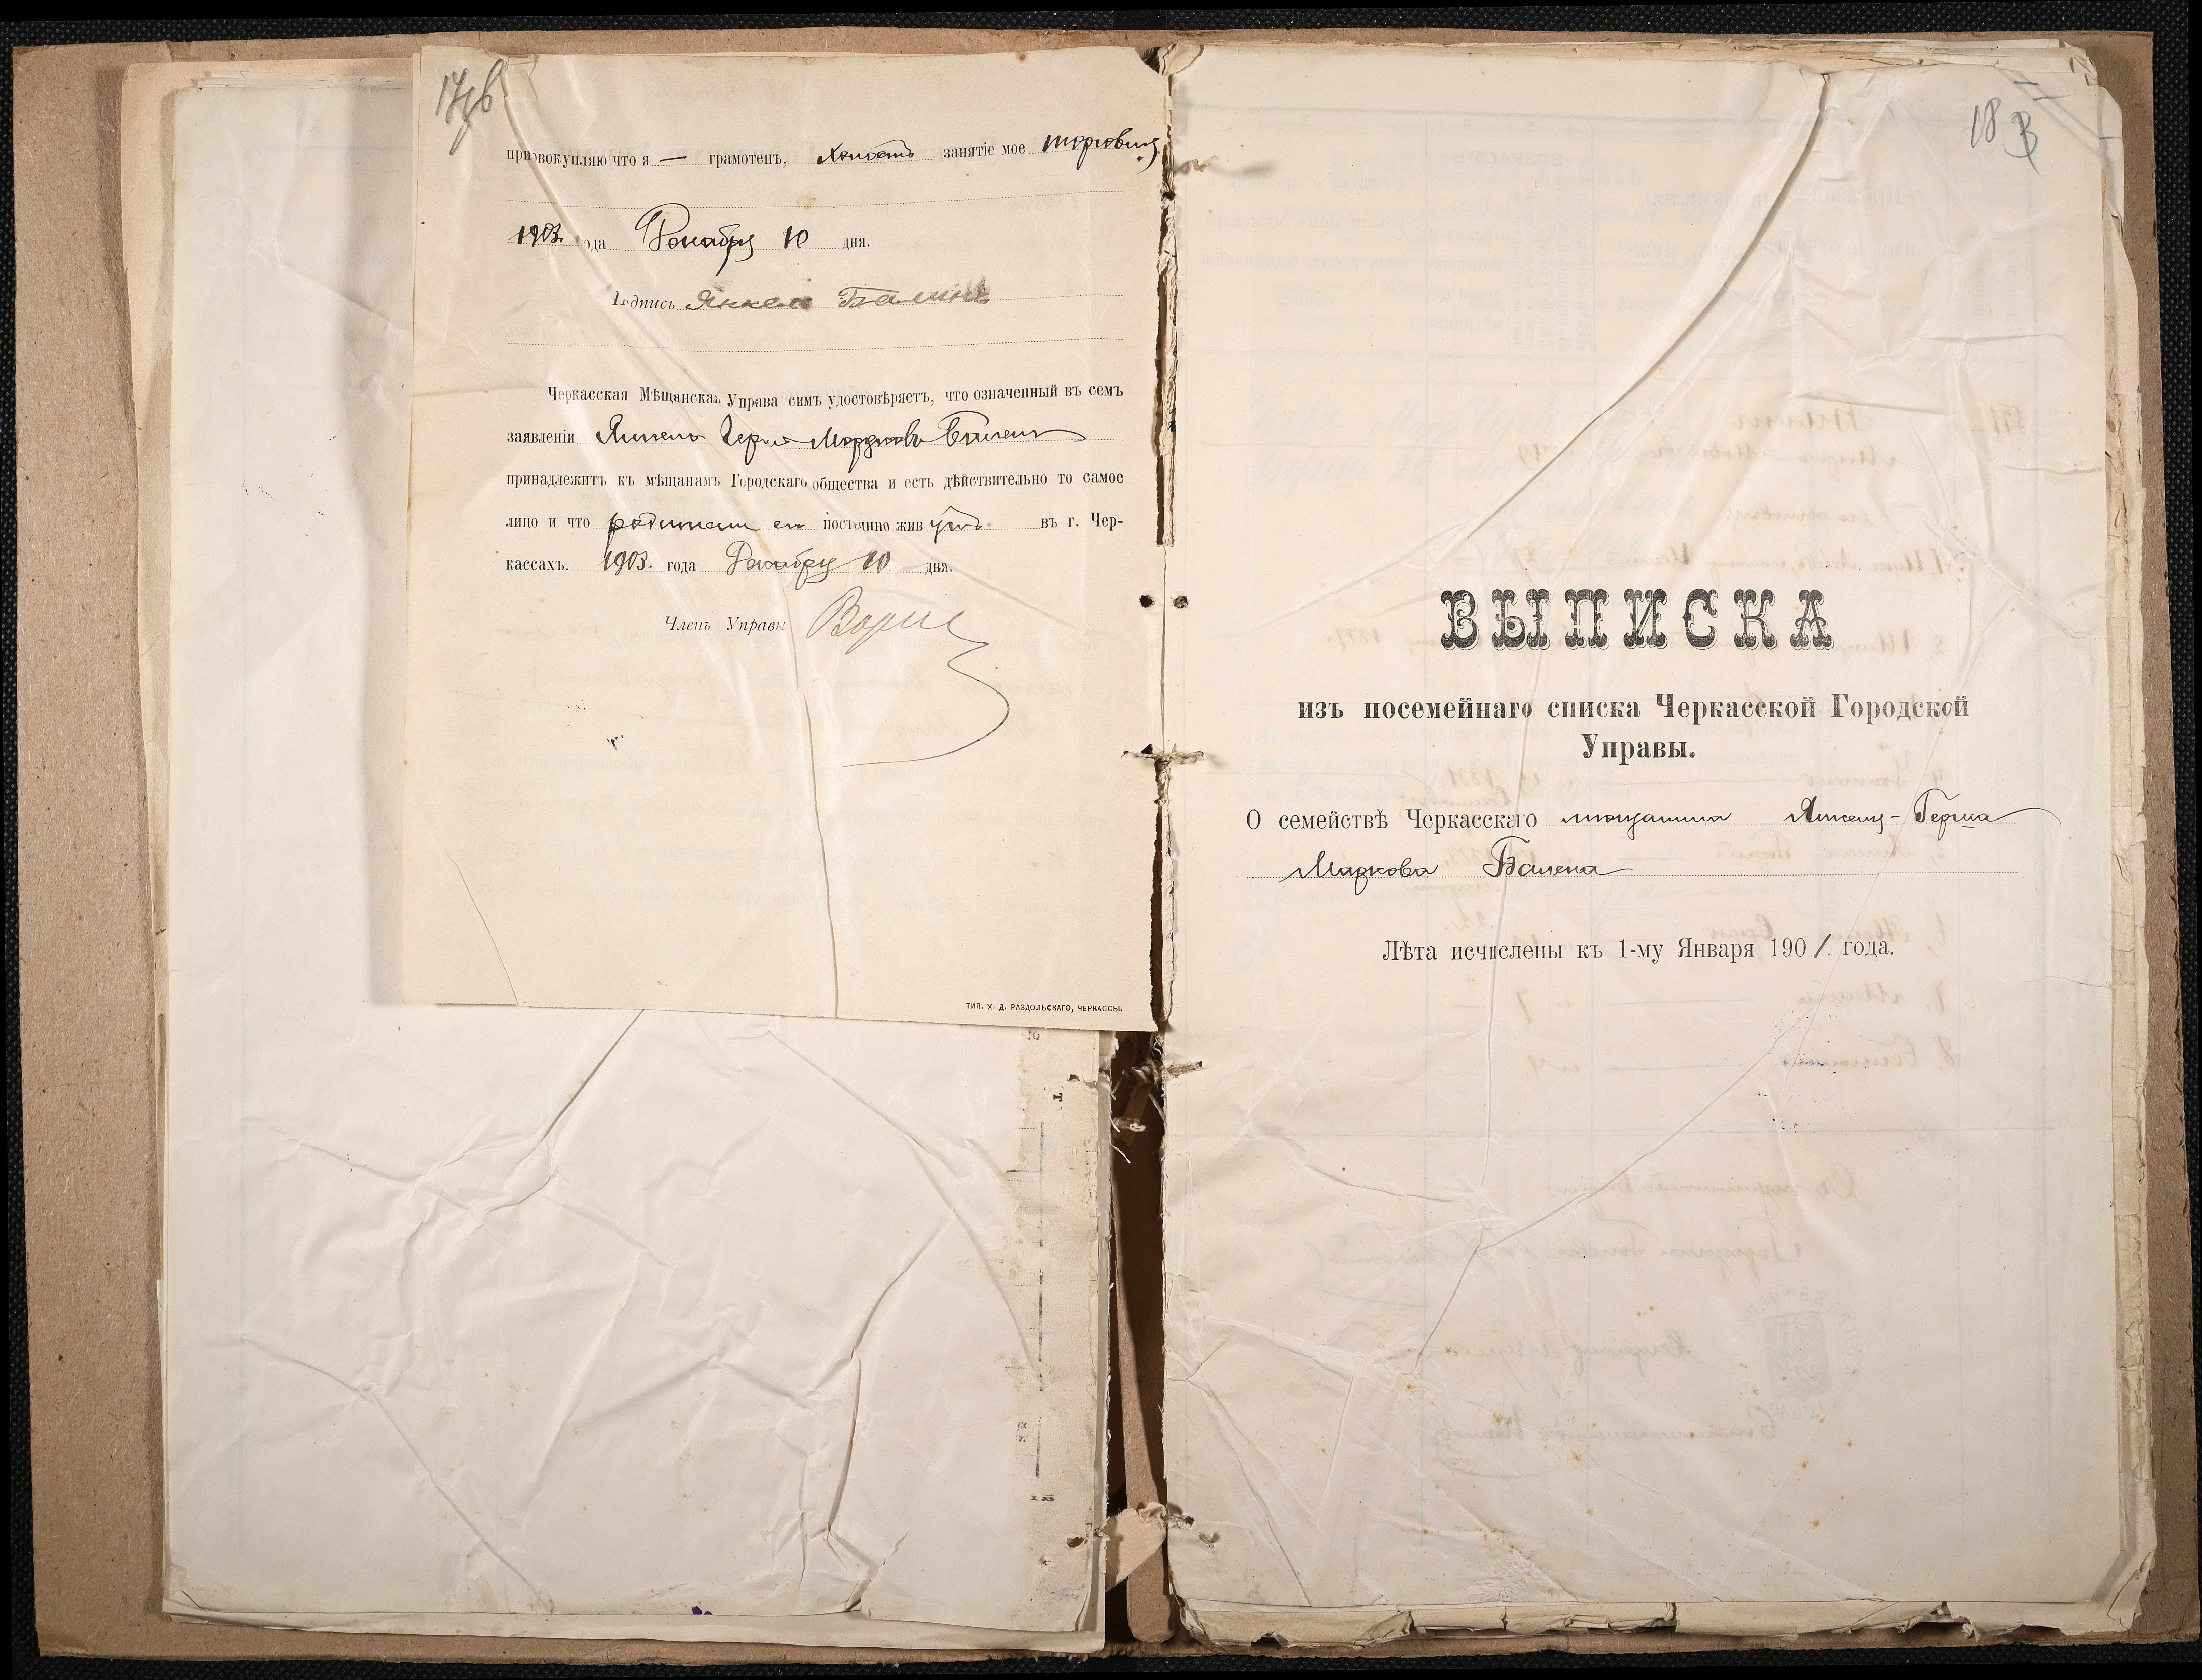 17об
привокупляю что я — грамотенъ, холостъ занятіе мое торговецъ
1903. года Декабря 10 дня.
Подпись Янкель Балинъ
Черкасская Мѣщанская Управа симъ удостовѣряетъ, что означенный въ семъ
заявленіи Янкель Герш Морд­ковъ Баленъ
принадлежитъ къ мѣщанамъ Городскаго общества и есть дѣйствительно то самое
лицо и что родители его постоянно живутъ въ г. Чер-
кассахъ. 1903. года Декабря 10 дня.
Членъ Управы
ТИП. Х. Д. РАЗДОЛЬСКАГО, ЧЕРКАССЫ.
18
ВЫПИСКА
изъ посемейнаго списка Черкасской Городской
Управы.
О семействѣ Черкасскаго мѣщанина Янкель-Герша
Маркова Балена
Лѣта исчислены къ 1-му Января 1901 года.